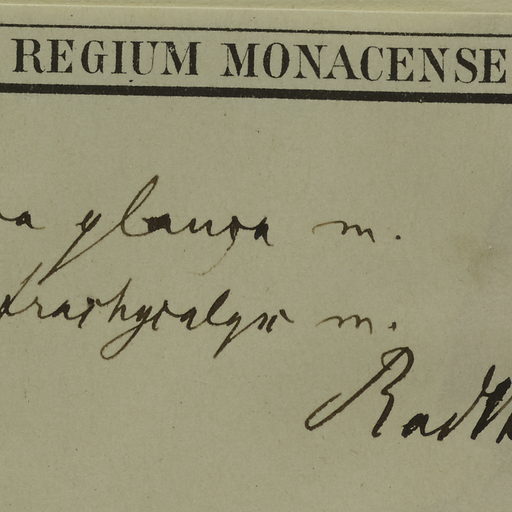 REGIUM MONACENSE
glauca m.
trachycalyx m.
Radlk